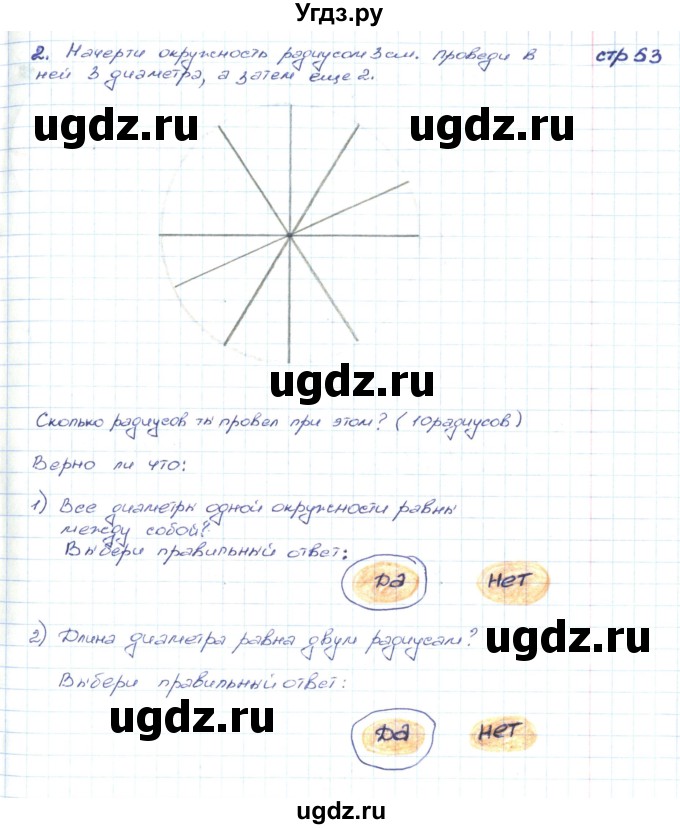 Угдз.ру
2. Начерти окружность радиусом 3 см. проведи в
стр 53
ней 3 диаметра, а затем еще 2.
ugdz.ru
ugdz.ru
ugdz.ru
Сколько радиусов ты провел при этом? (10 радиусов)
Верно ли что:
1) Все диаметры одной окружности равны
между собой?
Выбери правильный ответ:
Да
Нет
2) Длина диаметра равна двум радиусам?
ugdz.ru
Выбери правильный ответ:
ugdz.ru
Да
Нет
ugdz.ru